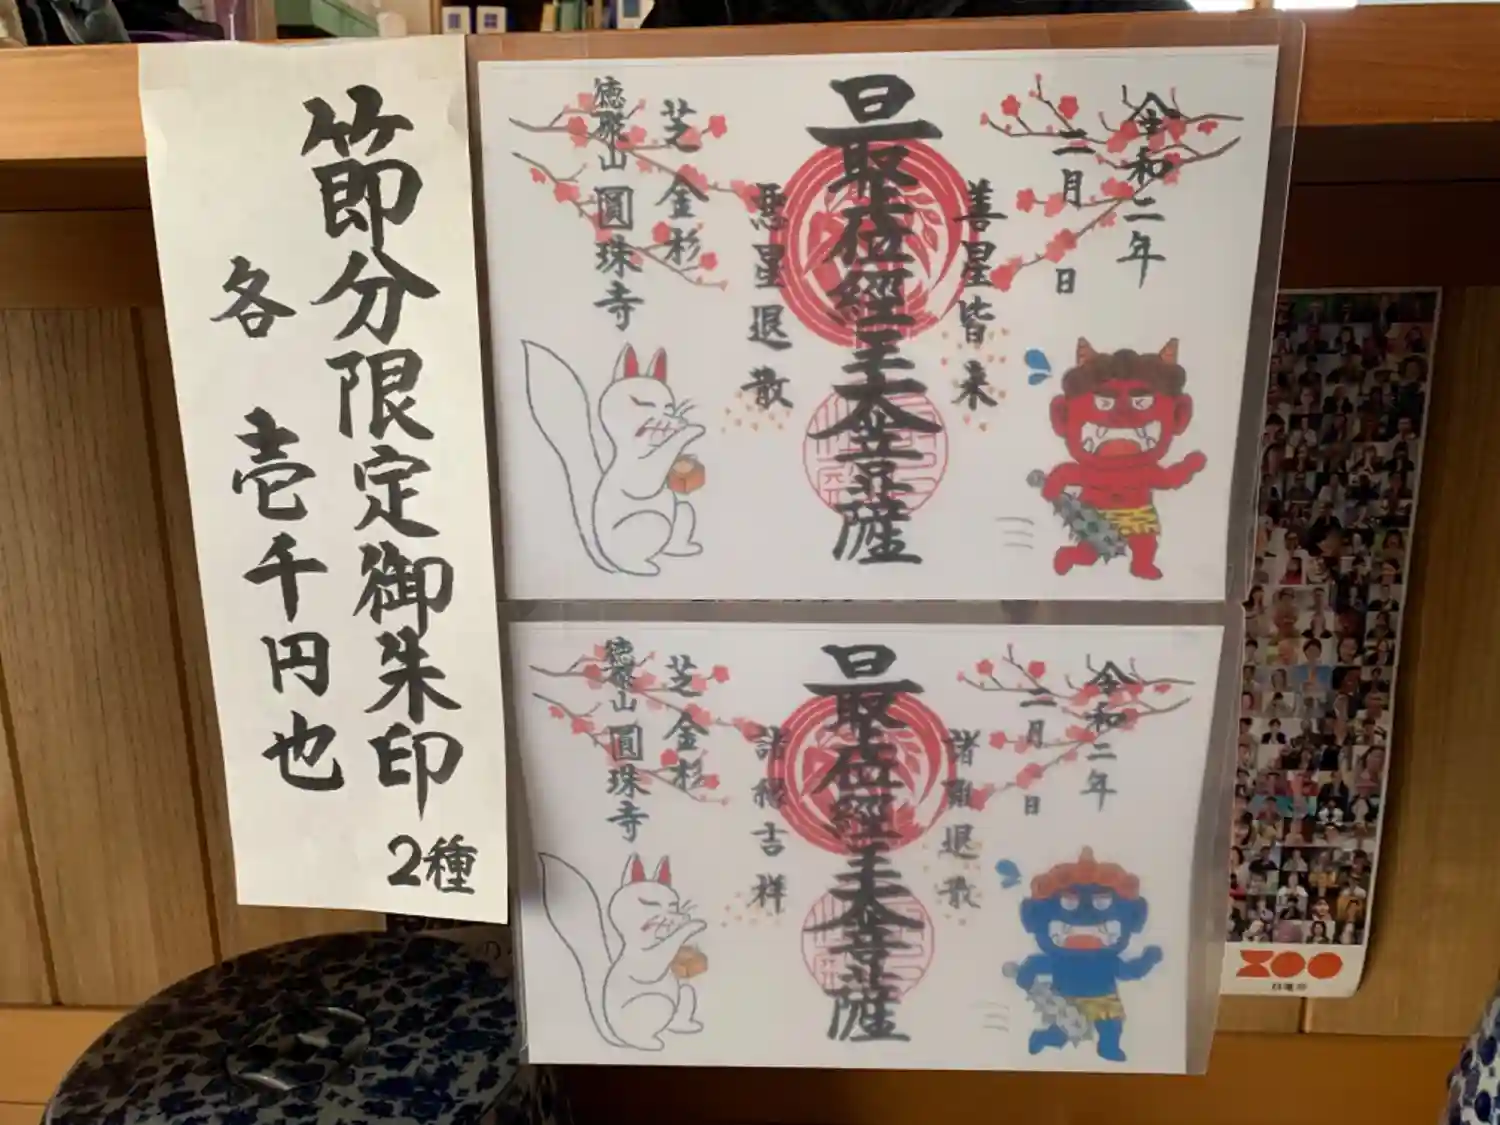 節分限定御朱印
2種
各 壱千円也
令和二年
二月 日
善星皆来
最上位經王大菩薩
悪星退散
芝金杉
圓珠寺
令和二年
二月 日
諸難退散
最上位經王大菩薩
諸縁吉祥
芝金杉
圓珠寺
ZOO